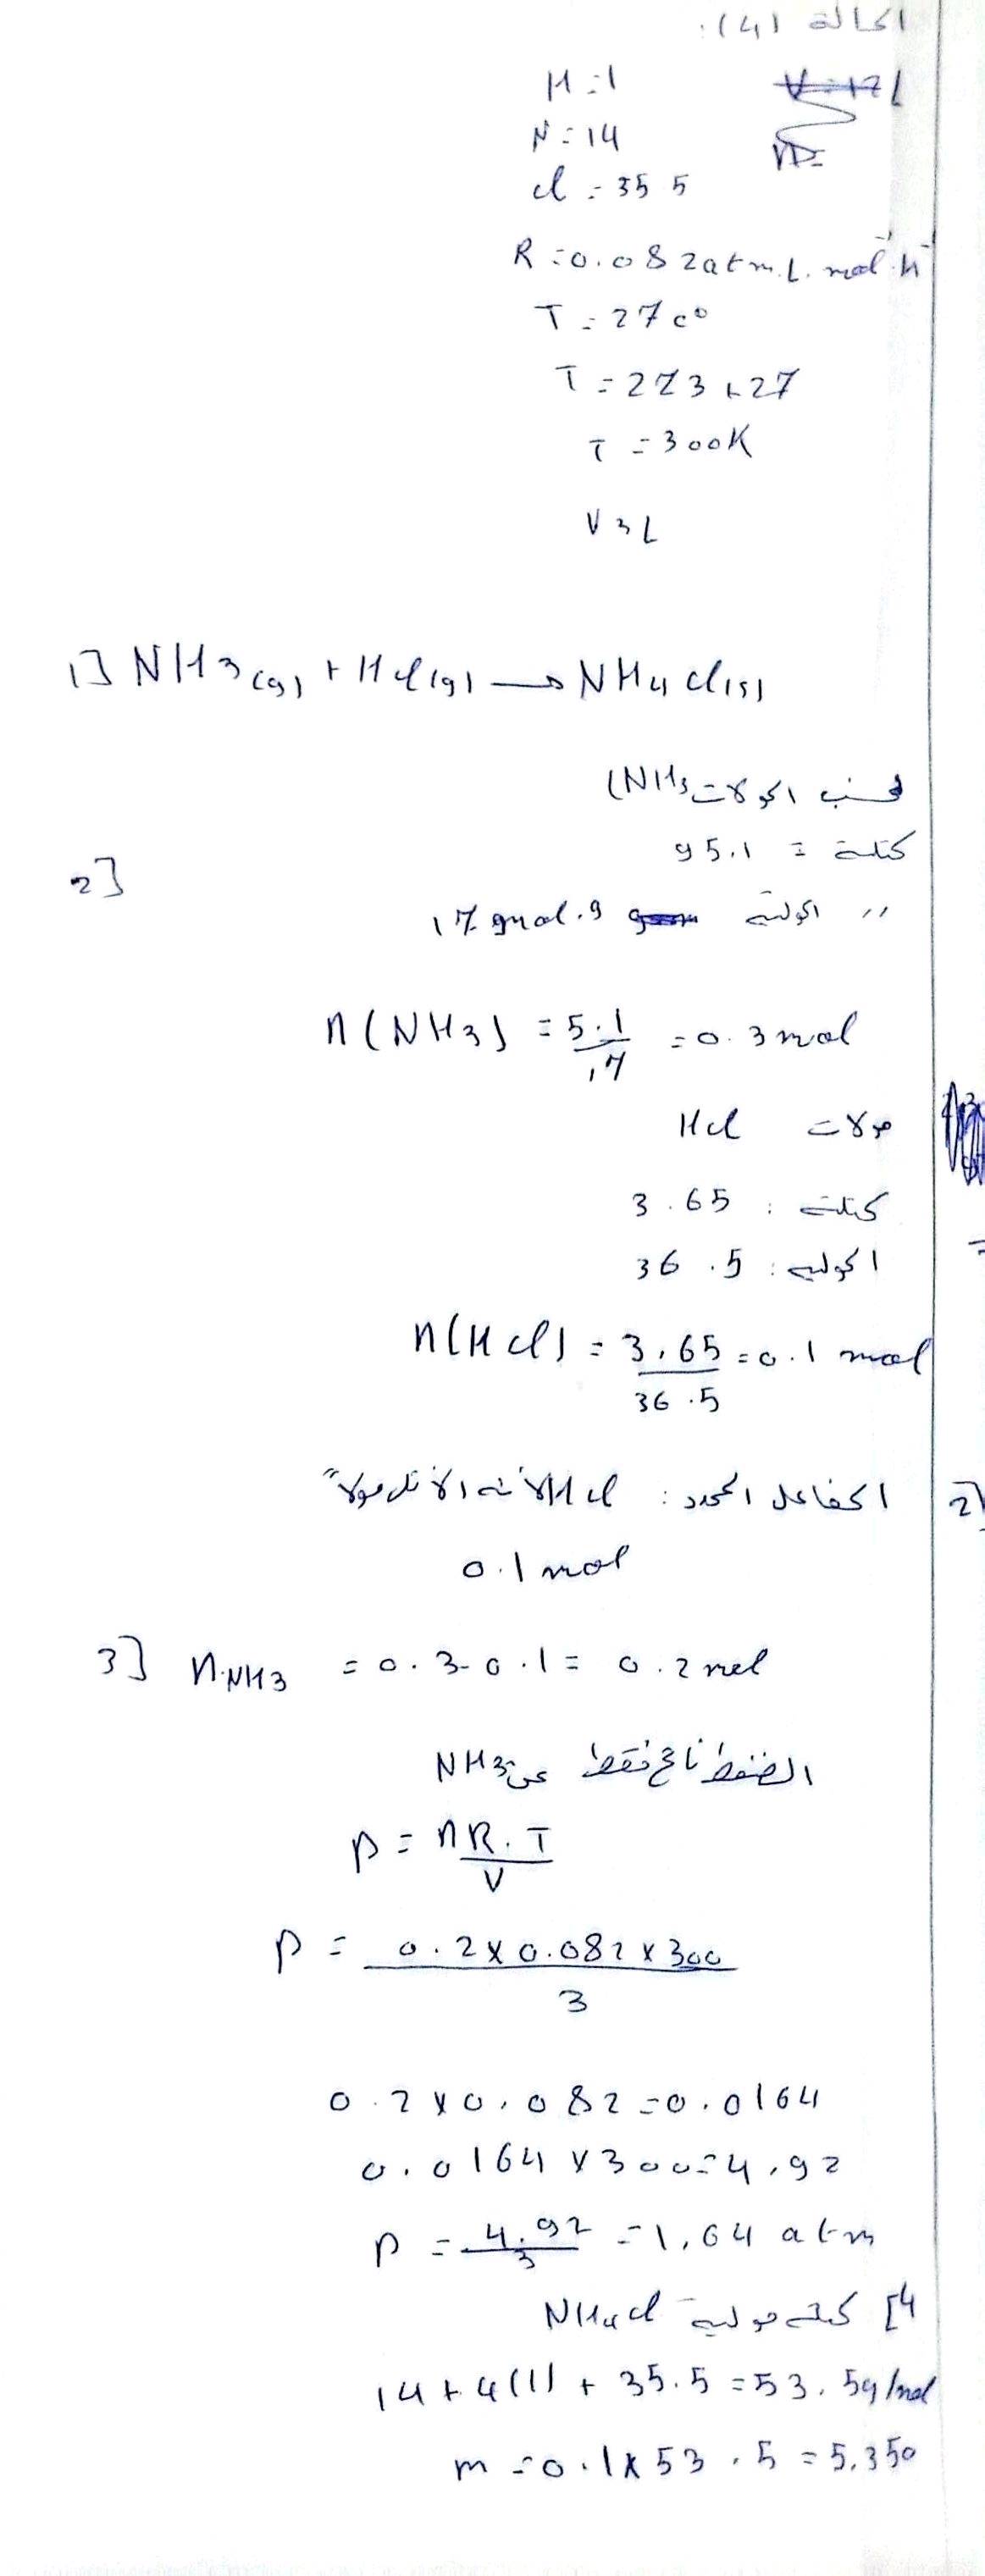 الحالة (4):
H = 1
N = 14
cl = 35 5
R = 0.082 atm.L.mol⁻¹.k⁻¹
T = 27 c°
T = 273 + 27
T = 300K
V 3 L
1] NH3(g) + Hcl(g) → NH4cl(s)
نحسب المولات NH3)
2] كتلة = 5.1 g
" المولية 17 gmol.g
n(NH3) = 5.1/17 = 0.3 mol
مولات Hcl
كتلته : 3.65
المولية : 36.5
n(Hcl) = 3.65/36.5 = 0.1 mol
المتفاعل المحدد : Hcl لأنه الأقل مولاً
0.1 mol
3] n.NH3 = 0.3 - 0.1 = 0.2 mol
الضغط ناتج فقط عن NH3
p = nR.T/V
p = 0.2 x 0.082 x 300/3
0.2 x 0.082 = 0.0164
0.0164 x 300 = 4.92
p = 4.92/3 = 1,64 atm
4] كتلة مولية NH4cl
14 + 4(1) + 35.5 = 53.5g/mol
m = 0.1 x 53.5 = 5.350